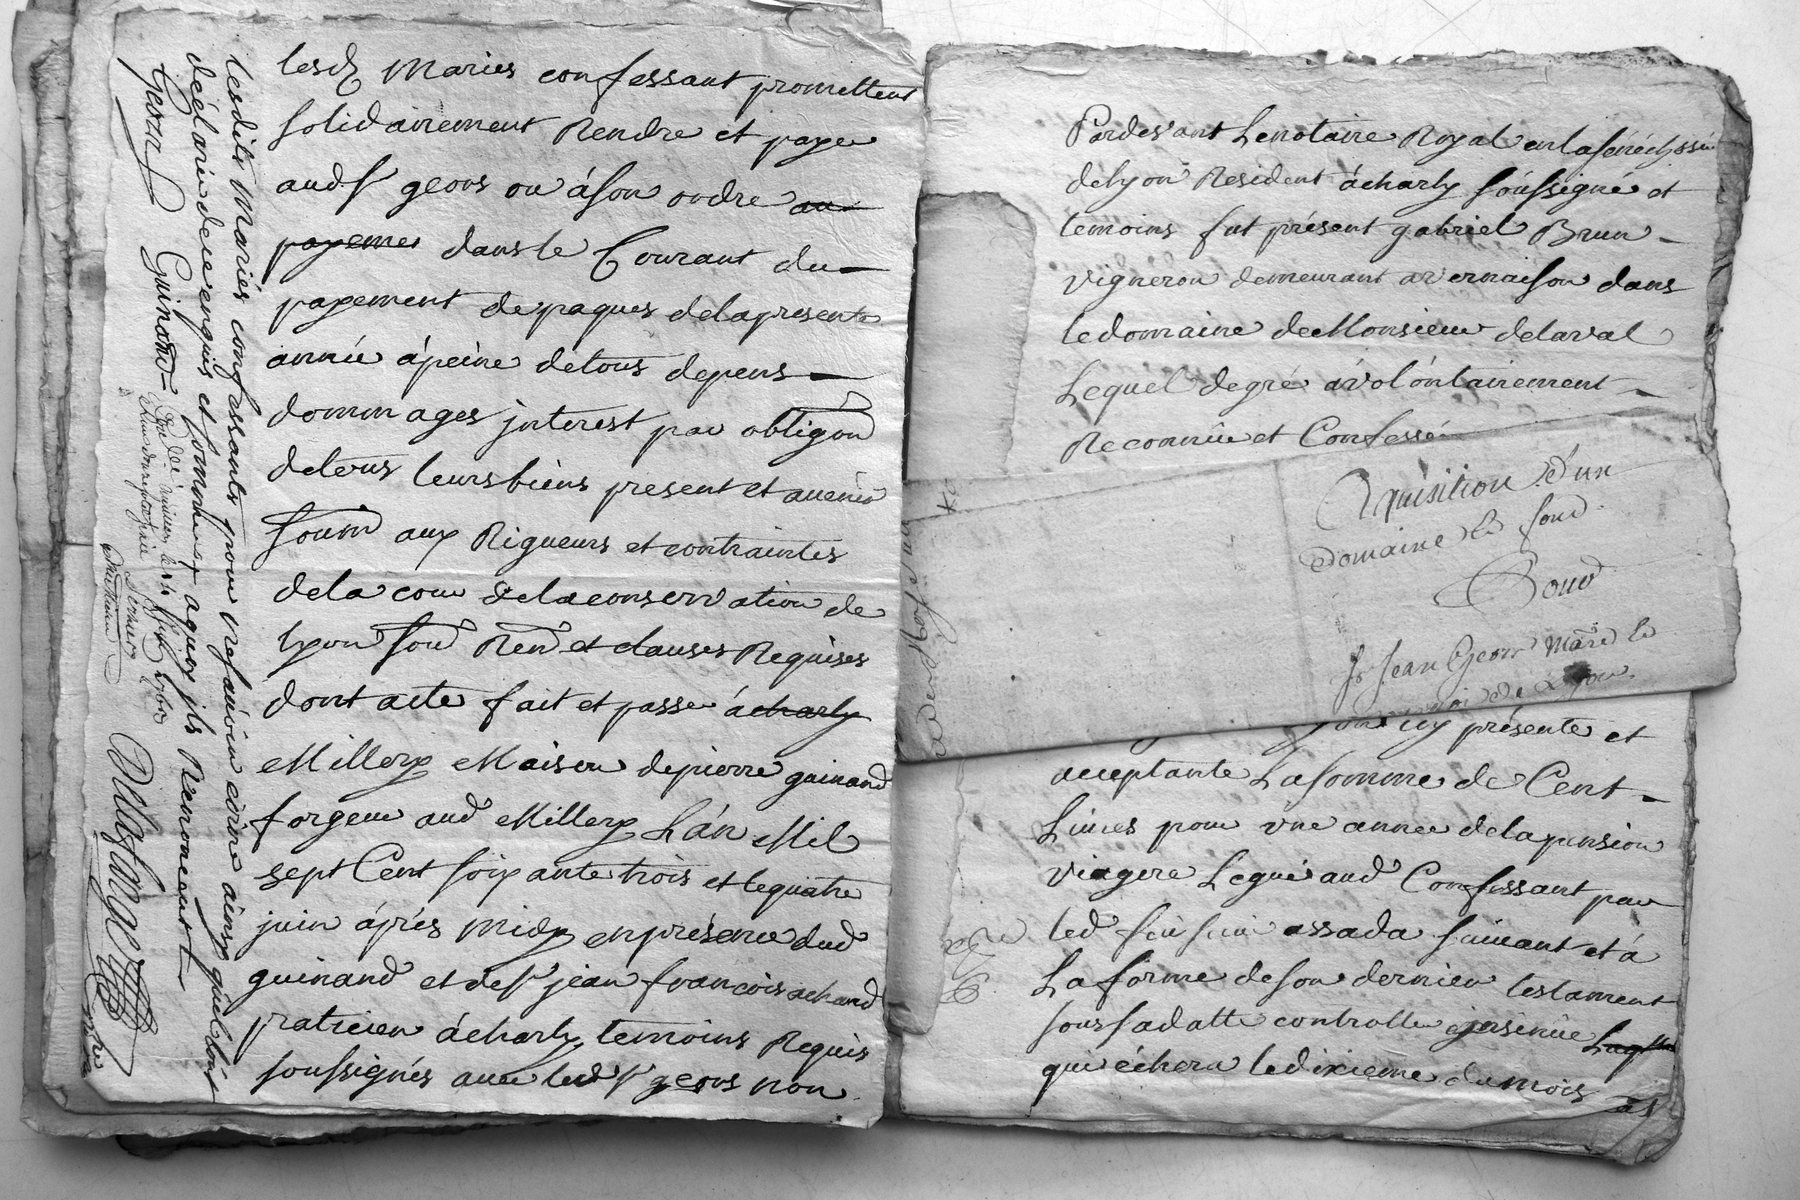 lesd Mariés confessant promettent
solidairement Rendre et payer
audSr geors ou á son ordre au
payemer dans le Courant du
payement de paques de la presente
année á peine de tous depens
dommages jnterest par obligon
de tous leurs biens present et avenir
soumn aux Rigueurs et contraintes
de la cour de la conservation de
lyon son Ren et clauses Requises
dont acte fait et passé á charly
Millery Maison de pierre guinand
forgeur aud Millery L'án Mil
sept Cent soixante trois et le quatre
juin áprés midy en présence dud
guinand et de Sr jean francois achard
praticien á charly temoins Requis
soussignés avec led Sr geors non
lesdits Mariés confessants pour ne sávoir écrire ainsy quils ont
déclaré de ce enquis et sommés aquoy jls Renoncent
geors Guinand
Pardevant Le notaire Royal en la sénéchssée
de lyon Resident á charly soussigné et
temoins fut présent gabriel Brun
vigneron demeurant a vernaison dans
le domaine de Monsieur delaval
Lequel de gré á volóntairement
Reconnüe et Confessé
Aquisition d'un
domaine le fond
Pour
Sr Jean Geors Mare le
de Lyon
présente et
acceptante La somme de Cent
Livres pour vne année de la pension
viagere Legué aud Confessant par
led feu assada suivant et á
La forme de son dernier testament
sous sa datte controllé et jnsinüe Laqlle
qui échera le dixieme du mois